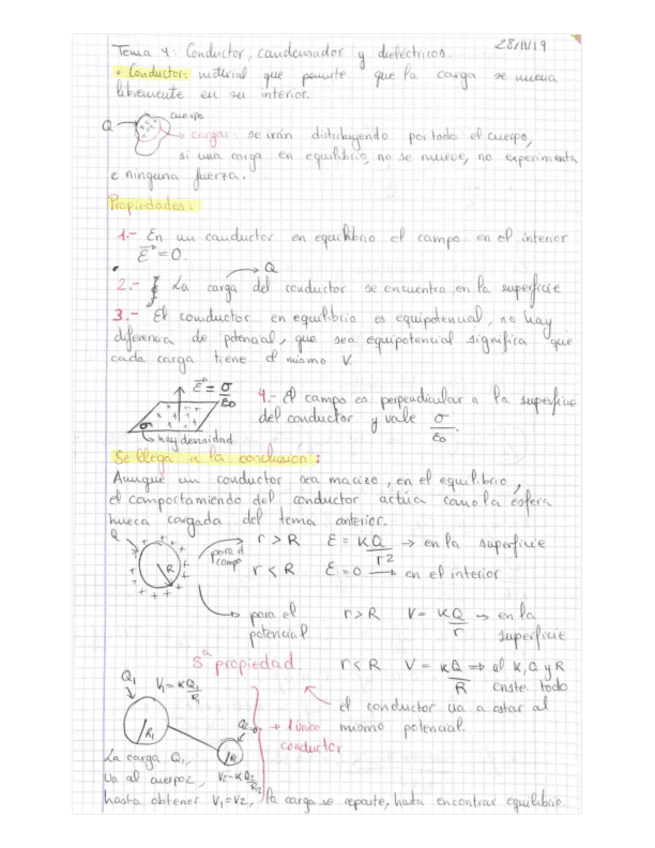 28/11/19
Tema 4: Conductor, condensador y dieléctricos.
• Conductor: material que permite que la carga se mueva
libremente en su interior.
cuerpo
Q
→ cargas: se irán distribuyendo por todo el cuerpo,
si una carga en equilibrio, no se mueve, no experimenta
e ninguna fuerza.
Propiedades:
1.- En un conductor en equilibrio el campo en el interior
E = 0.
→ Q
2.- La carga del conductor se encuentra en la superficie
3.- El conductor en equilibrio es equipotencial, no hay
diferencia de potencial, que sea equipotencial significa que
cada carga tiene el mismo V.
E = σ/ε0
σ
hay densidad
4.- El campo es perpendicular a la superficie
del conductor y vale σ/ε0.
Se llega a la conclusión:
Aunque un conductor sea macizo, en el equilibrio,
el comportamiento del conductor actúa como la esfera
hueca cargada del tema anterior.
Q
R
para el campo
r > R E = KQ/r2 → en la superficie
r < R E = 0 → en el interior
para el potencial
r > R V = KQ/r → en la superficie
3ª propiedad
r < R V = KQ/R ⇒ al K, Q y R
cnste todo
el conductor va a estar al
mismo potencial.
Q1
V1 = K Q1/R1
R1
→ 1 único
conductor
La carga Q1,
va al cuerpo 2, V2 = K Q2/R2
hasta obtener V1 = V2, la carga se reparte, hasta encontrar equilibrio.